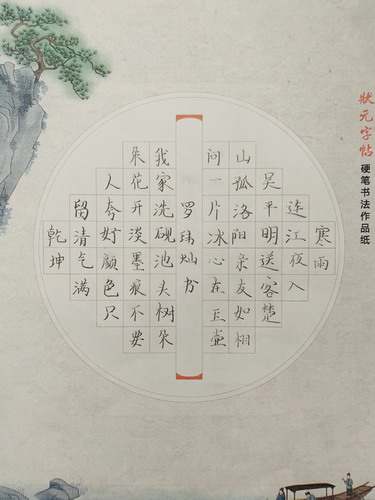 狀元字帖
硬笔书法作品纸
寒雨
连江夜入
吴平明送客楚
山孤洛阳亲友如相
问一片冰心在玉壶
罗玮灿书
我家洗砚池头树朵
朵花开淡墨痕不要
人夸好颜色只
留清气满
乾坤